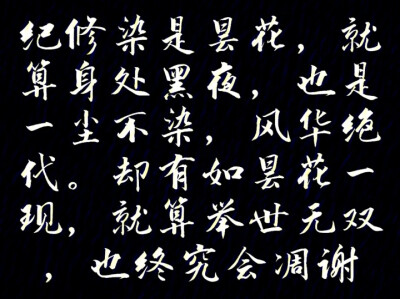 纪修染是昙花，就
算身处黑夜，也是
一尘不染，风华绝
代。却有如昙花一
现，就算举世无双
，也终究会凋谢